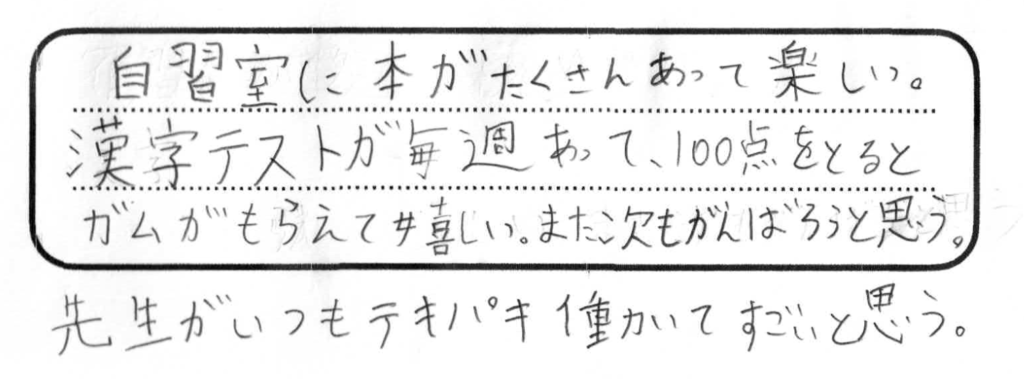 自習室に本がたくさんあって楽しい。
漢字テストが毎週あって、100点をとると
ガムがもらえて嬉しい。また次もがんばろうと思う。
先生がいつもテキパキ働いてすごいと思う。